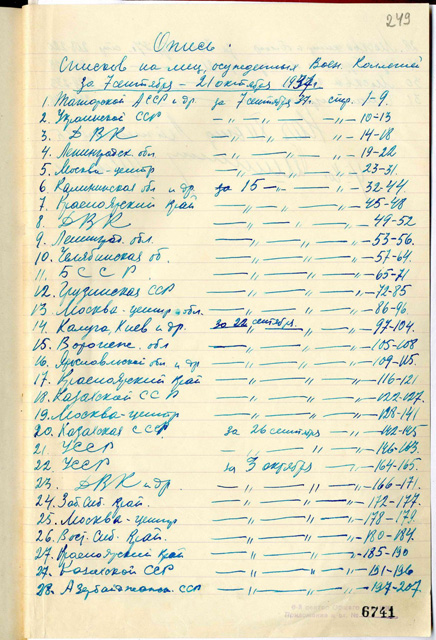 249
Опись.
Списков на лиц, осужденных Воен. Коллегией
за 7 сентября – 21 октября 1937г.
1. Татарской АССР и др. за 7 сентября 37г. стр. 1-9.
2. Украинской ССР — „ — „ — 10-13
3. ДВК — „ — „ — 14-18
4. Ленинградск. обл. — „ — „ — 19-22
5. Москва-центр — „ — „ — 23-31.
6. Калининская обл и др. за 15 — „ — „ — 32-44
7. Красноярский край — „ — „ — 45-48
8. ДВК — „ — „ — 49-52
9. Ленингр. обл. — „ — „ — 53-56.
10. Челябинская об. — „ — „ — 57-64.
11. БССР. — „ — „ — 65-71
12. Грузинская ССР — „ — „ — 72-85
13. Москва-центр и обл. — „ — „ — 86-96.
14. Калуга, Киев и др. за 22 сентября. — „ — 97-104.
15. Воронеж. обл — „ — „ — 105-108
16. Ярославской обл и др — „ — „ — 109-115.
17. Красноярский край — „ — „ — 116-121
18. Казахской ССР — „ — „ — 122-127.
19. Москва-центр — „ — „ — 128-141.
20. Казахская ССР за 26 сентября — „ — 142-145
21. УССР — „ — „ — 146-163.
22. УССР за 3 октября — „ — 164-165.
23. ДВК и др. — „ — „ — 166-171.
24. Зап. Сиб. край. — „ — „ — 172-177.
25. Москва-центр — „ — „ — 178-179.
26. Вост. Сиб. Край. — „ — „ — 180-184.
27. Красноярский край — „ — „ — 185-190
27. Казахской ССР — „ — „ — 191-196
28. Азербайджанск. ССР — „ — „ — 197-207.
6741